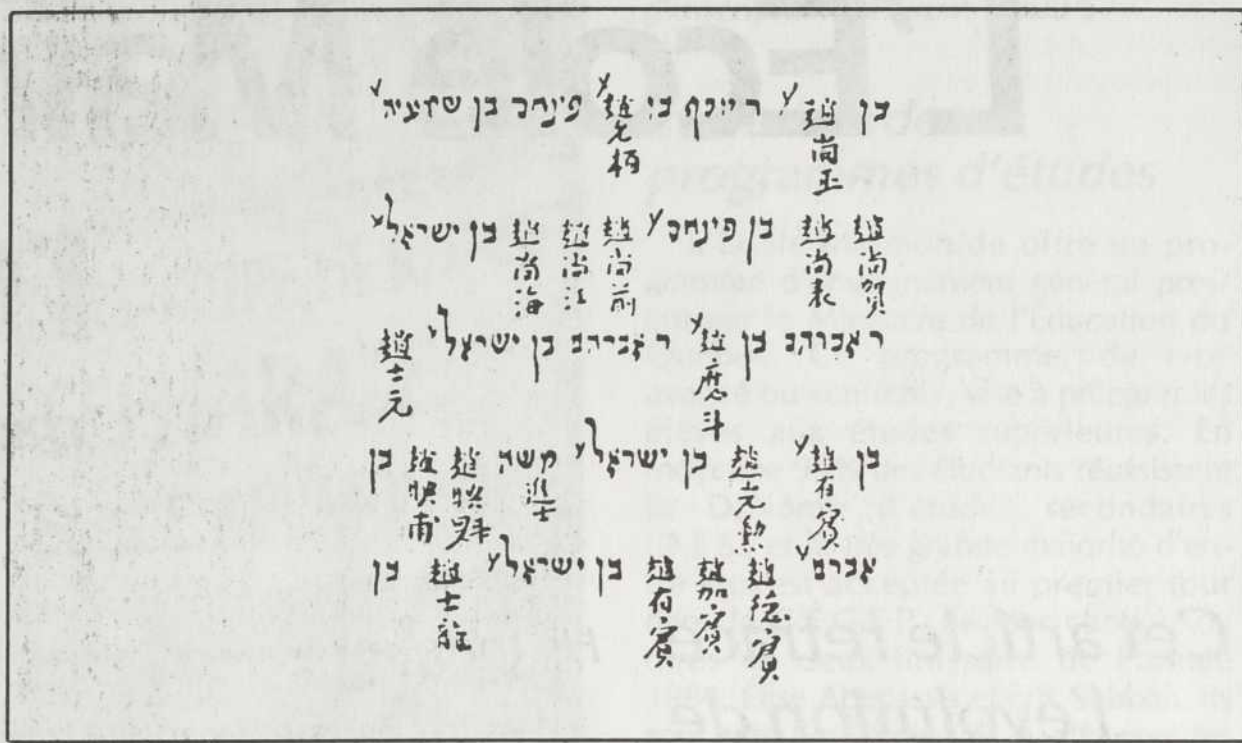 בן ע 趙尚玉 ר יוסף בן ע 趙允柄 פינחס בן שמעיה ע
趙尚賀 趙尚表 בן פינחס ע 趙尚前 趙尚江 趙尚海 בן ישראל ע
ר אברהם בן ע 趙應斗 ר אברהם בן ישראל ע 趙士元
בן ע 趙有賓 趙元勲 בן ישראל ע משה 進士 趙映斗 趙映甫 בן
אברם ע 趙德賓 趙加賓 趙有賓 בן ישראל ע 趙士 בן